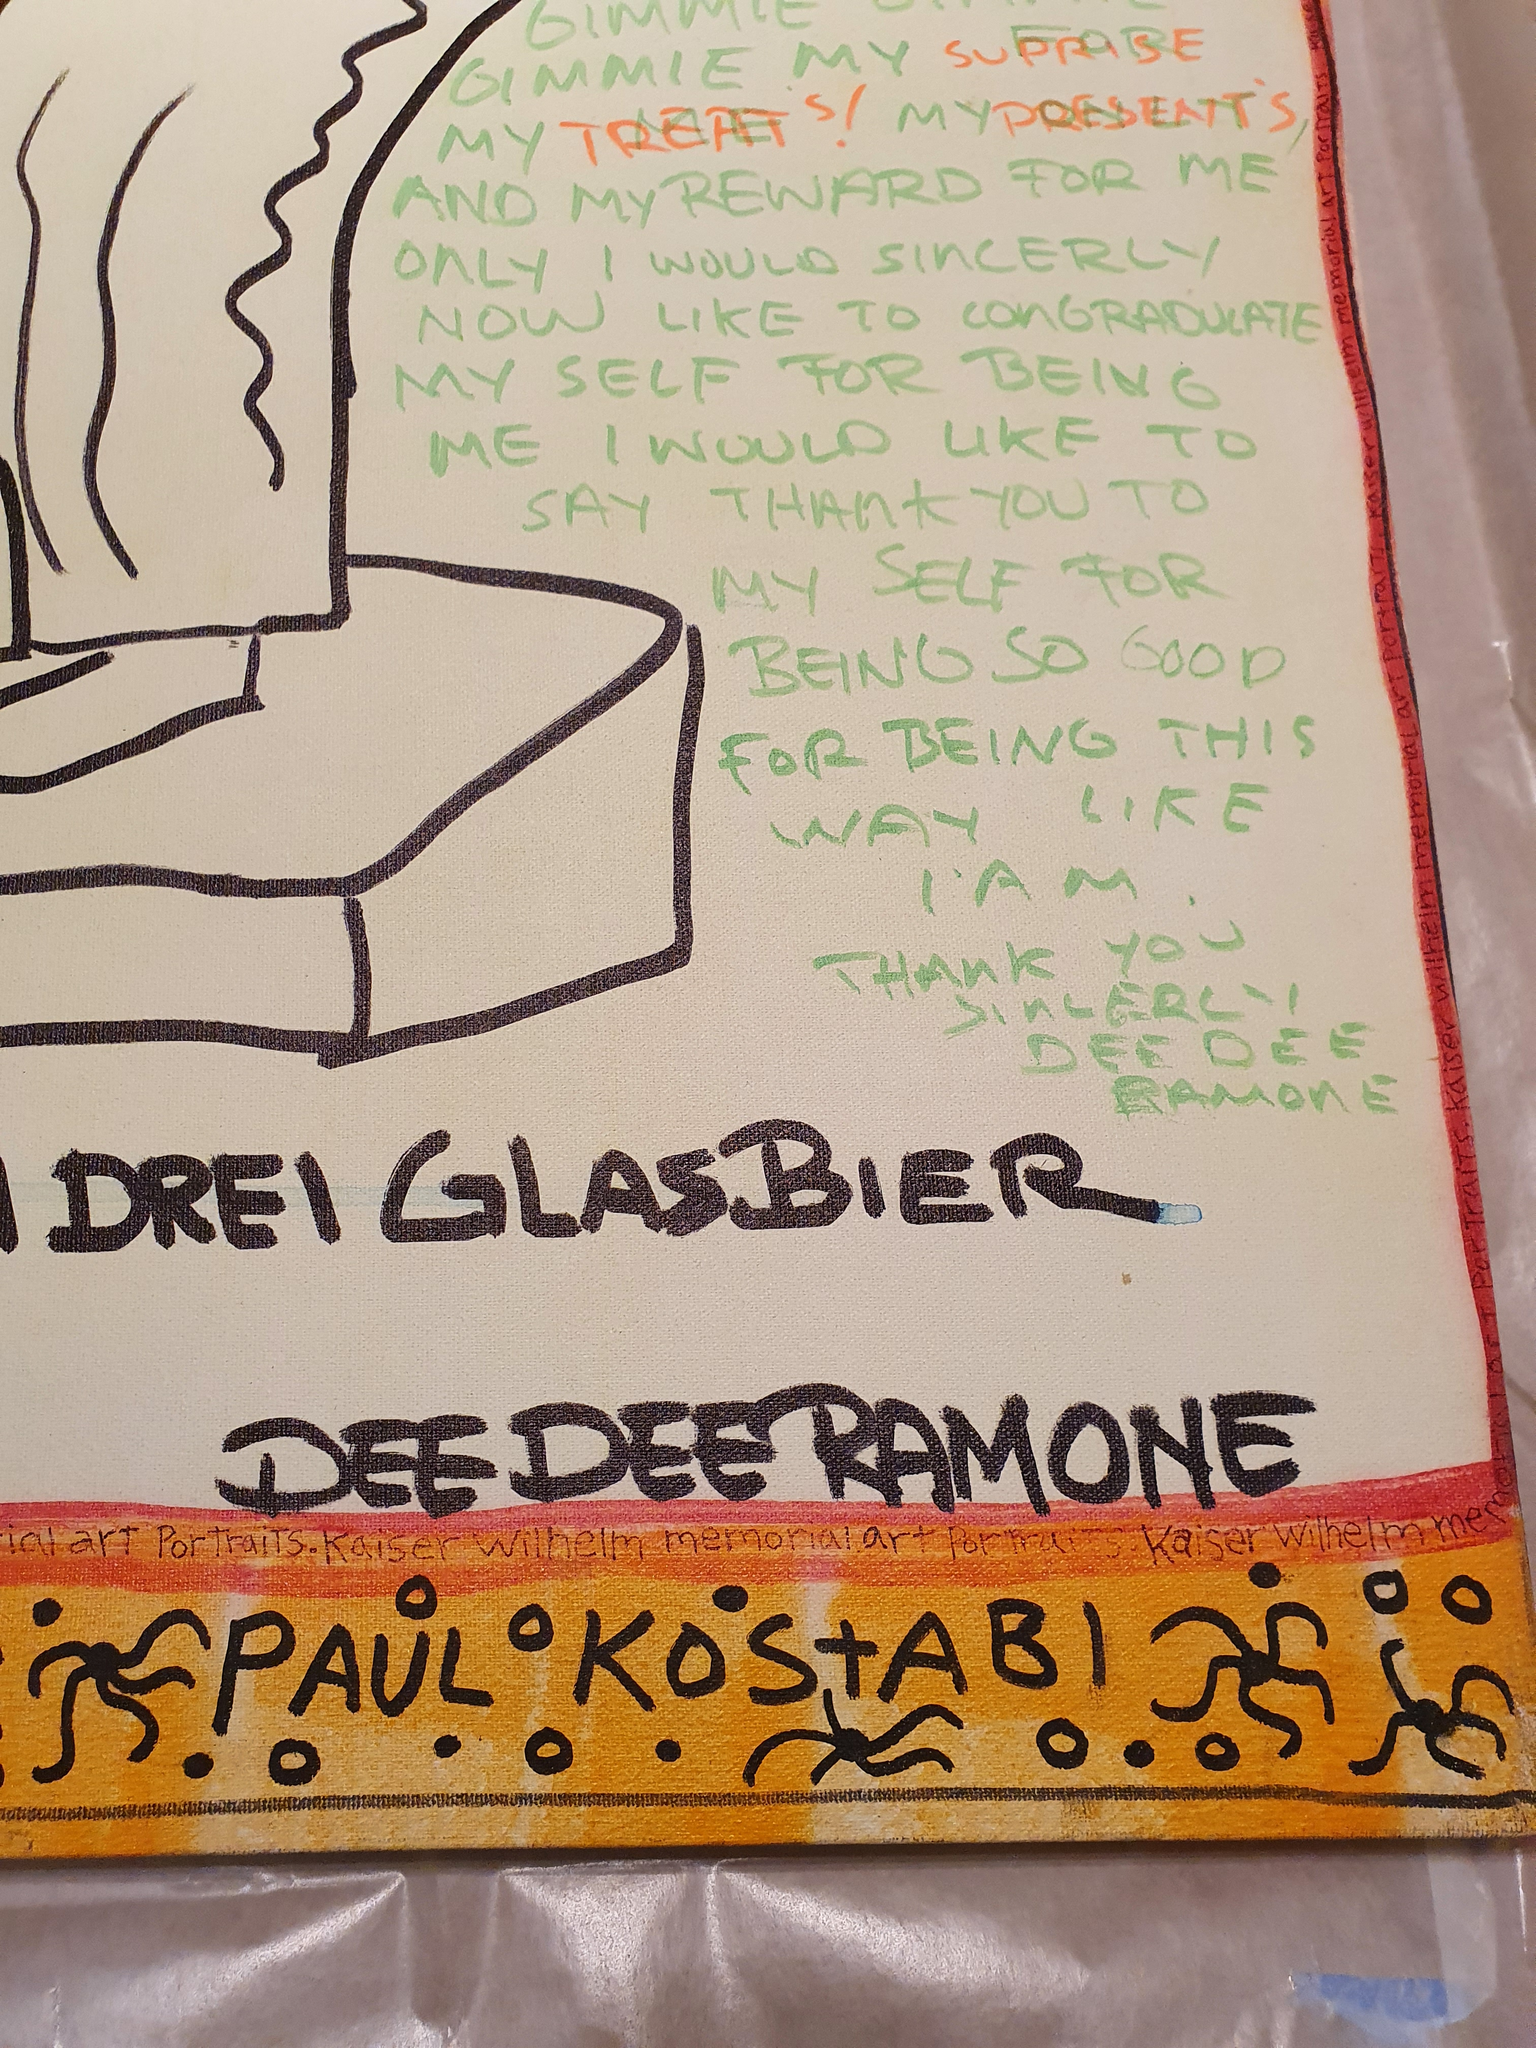 GIMMIE GIMMIE
GIMMIE MY SUPRISE
MY TREAT'S! MY PRESENT'S,
AND MY REWARD FOR ME
ONLY I WOULD SINCERLY
NOW LIKE TO CONGRADULATE
MY SELF FOR BEING
ME I WOULD LIKE TO
SAY THANK YOU TO
MY SELF FOR
BEING SO GOOD
FOR BEING THIS
WAY LIKE
I'AM.
THANK YOU
SINCERLY!
DEE DEE
RAMONE
DREI GLAS BIER
DEE DEE RAMONE
rial art Portraits. Kaiser Wilhelm memorial art Portraits. Kaiser Wilhelm memorial art Portraits. Kaiser Wilhelm memorial art Portraits. Kaiser Wilhelm memorial art Portraits. Kaiser Wilhelm memorial art Portraits.
PAUL KOSTABI